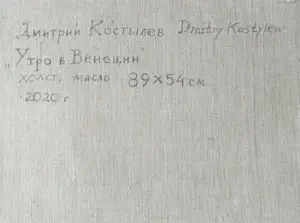 Дмитрий Костылев Dmitry Kostylew
„Утро в Венеции"
холст, масло 89×54 см
2020 г